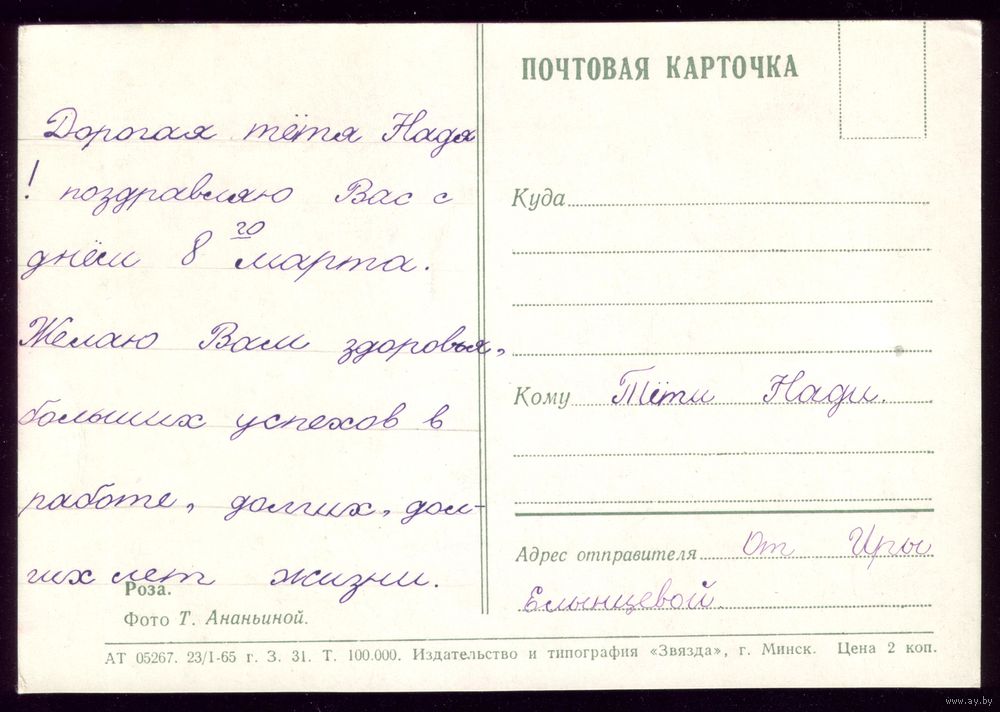 Дорогая тётя Надя
! поздравляю Вас с
днём 8 го марта.
Желаю Вам здоровья,
больших успехов в
работе, долгих, дол-
гих лет жизни.
Роза.
Фото Т. Ананьиной.
ПОЧТОВАЯ КАРТОЧКА
Куда
Кому Тёти Нади.
Адрес отправителя От Иры
Елынцевой.
АТ 05267. 23/I-65 г. З. 31. Т. 100.000. Издательство и типография «Звязда», г. Минск. Цена 2 коп.
www.ay.by